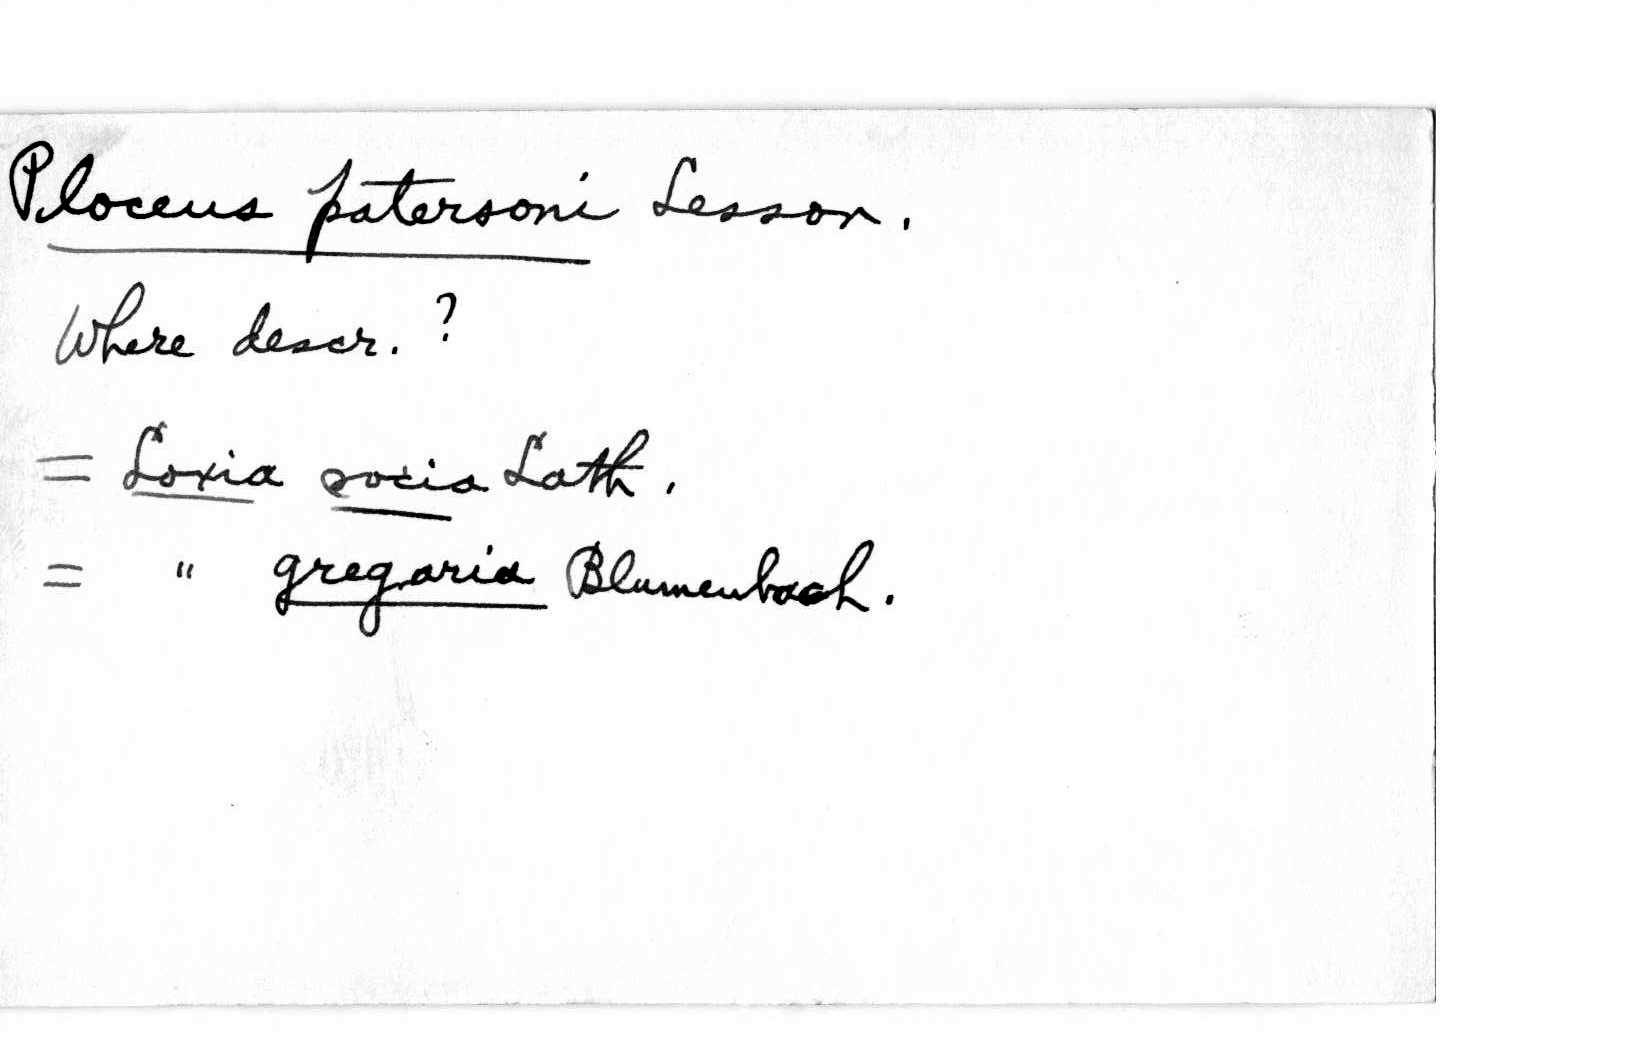 Ploceus patersoni Lesson.
Where descr.?
= Loxia socia Lath.
= " gregaria Blumenbach.